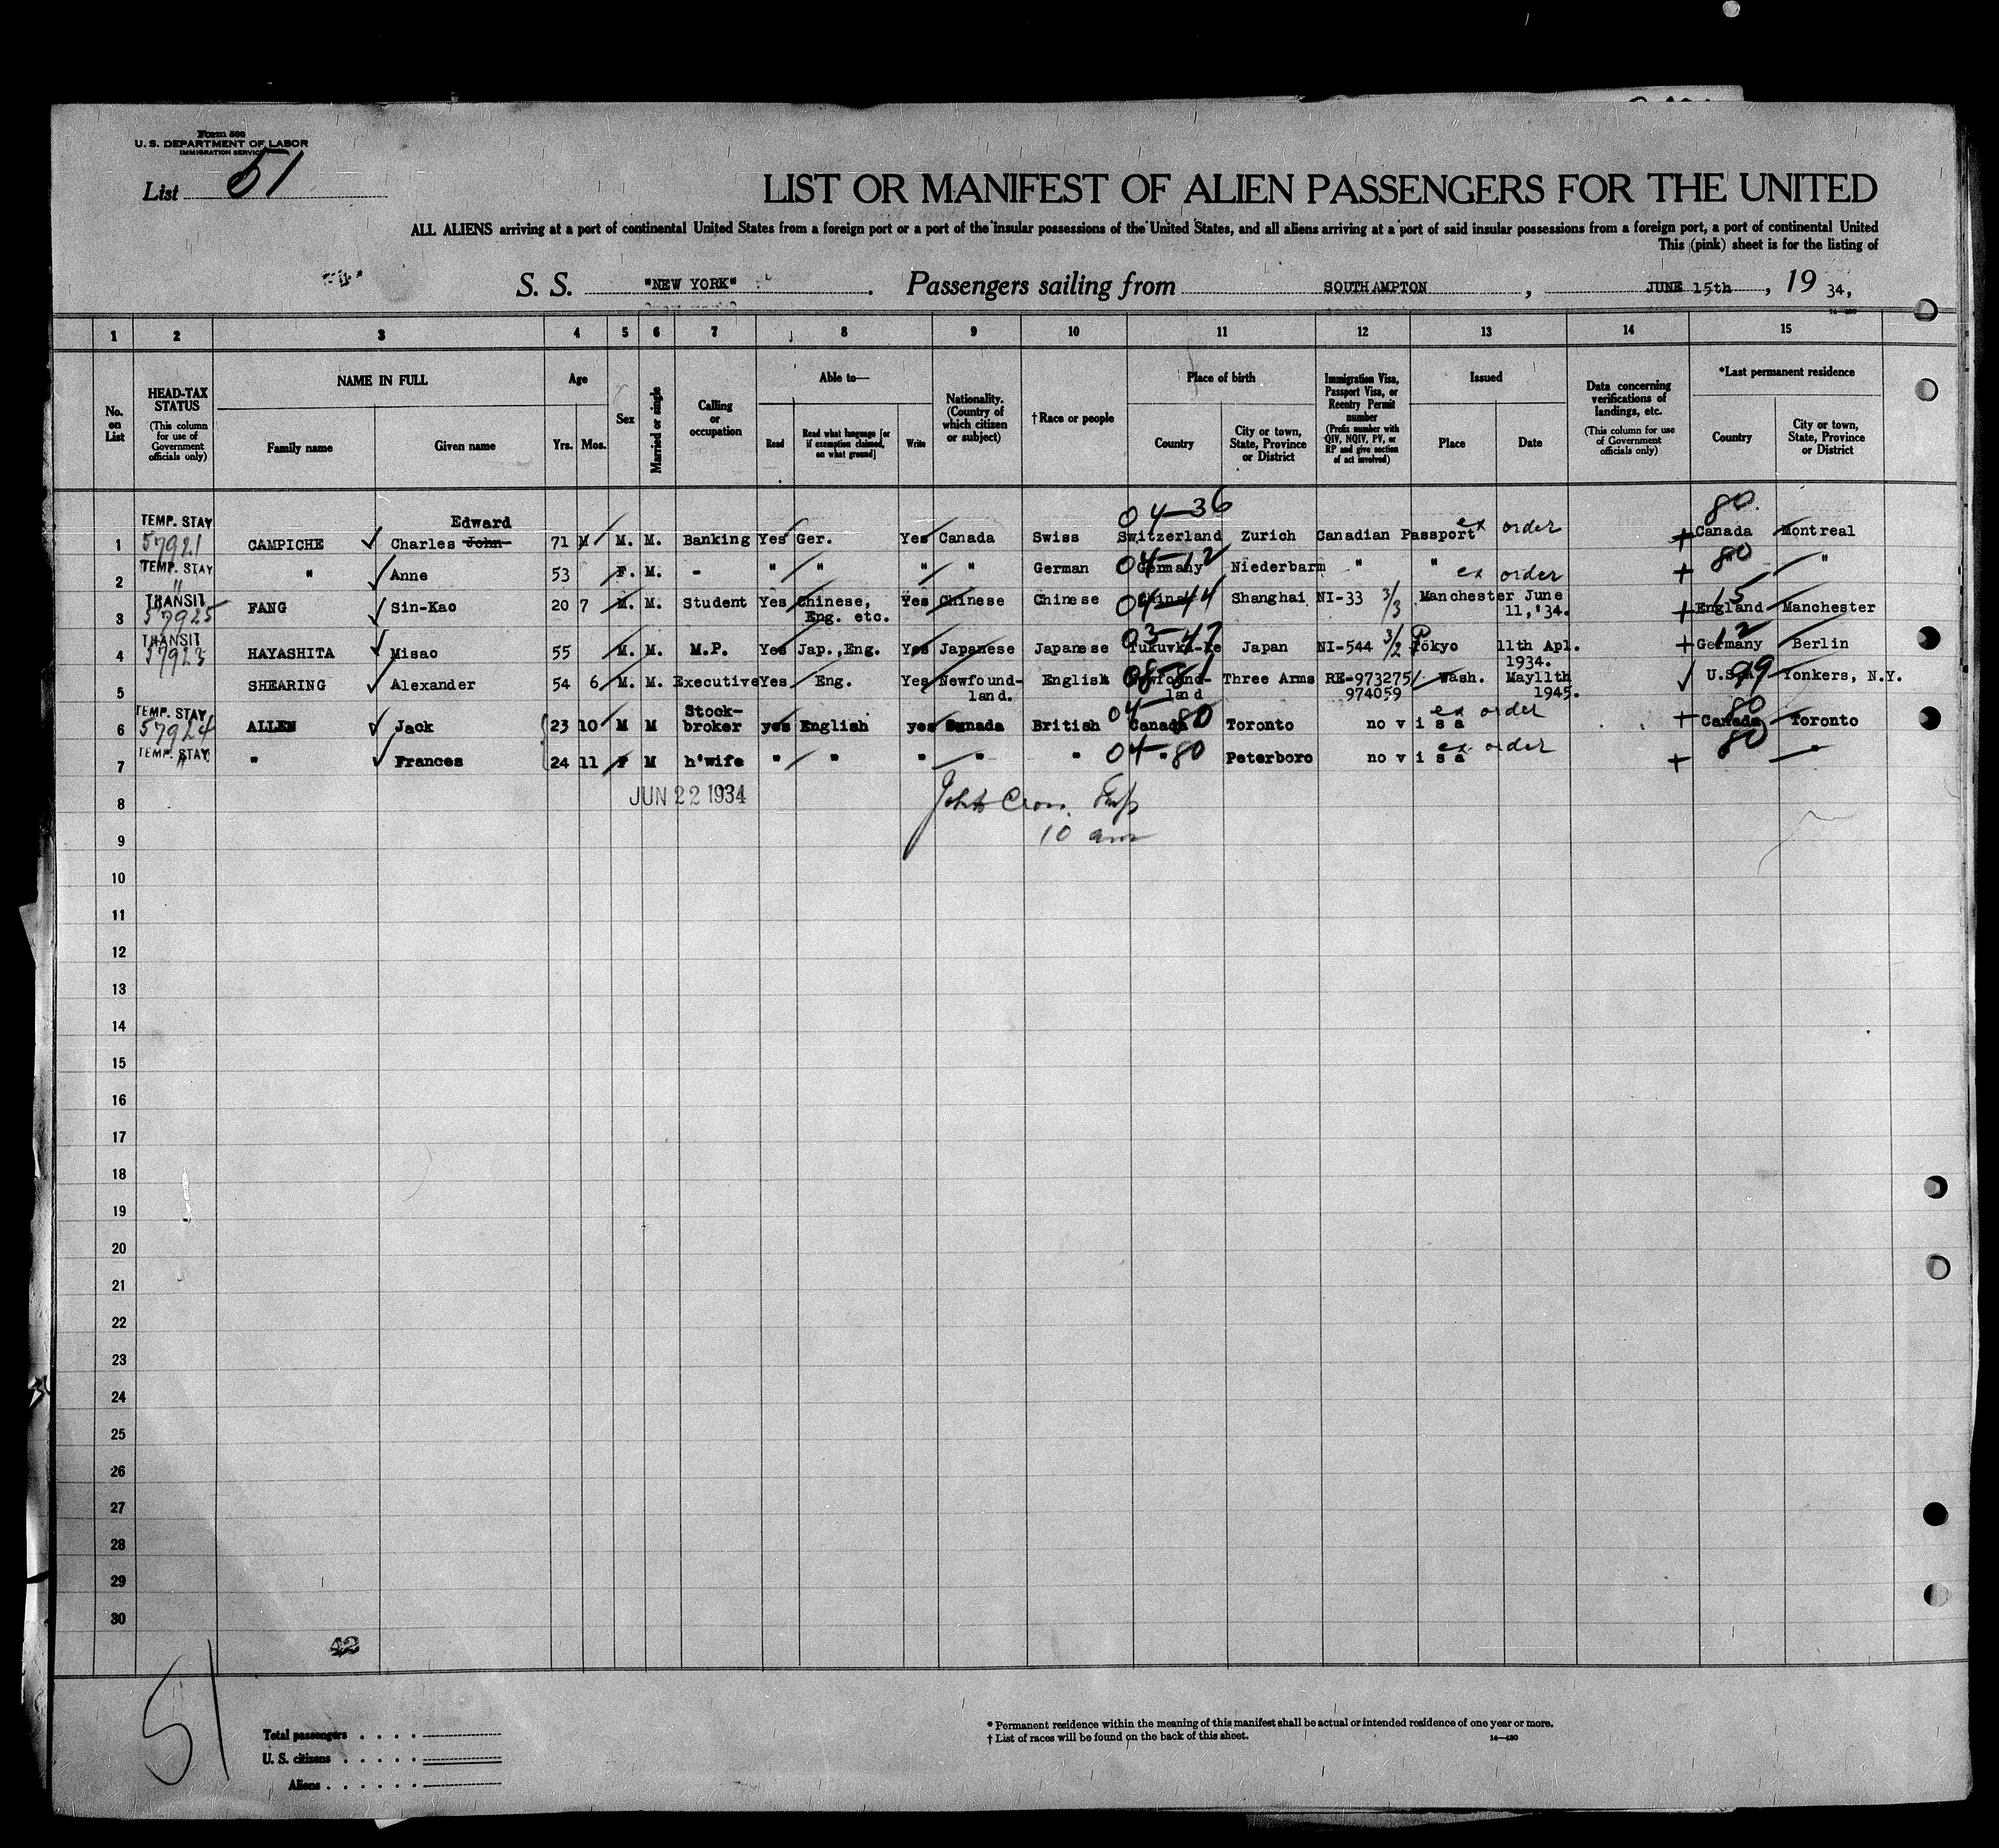 Form 500
U. S. DEPARTMENT OF LABOR
IMMIGRATION SERVICE
List 51
LIST OR MANIFEST OF ALIEN PASSENGERS FOR THE UNITED
ALL ALIENS arriving at a port of continental United States from a foreign port or a port of the insular possessions of the United States, and all aliens arriving at a port of said insular possessions from a foreign port, a port of continental United
This (pink) sheet is for the listing of
S. S. "NEW YORK". Passengers sailing from SOUTHAMPTON, JUNE 15th, 19 34,
1 2 3 4 5 6 7 8 9 10 11 12 13 14 15
No. on List
HEAD-TAX STATUS
(This column for use of Government officials only)
NAME IN FULL
Family name
Given name
Age
Yrs. Mos.
Sex
Married or single
Calling or occupation
Able to—
Read
Read what language [or if exemption claimed, on what ground]
Write
Nationality. (Country of which citizen or subject)
† Race or people
Place of birth
Country
City or town, State, Province or District
Immigration Visa, Passport Visa, or Reentry Permit number
(Prefix number with QIV, NQIV, PV, or RP and give section of act involved)
Issued
Place
Date
Data concerning verifications of landings, etc.
(This column for use of Government officials only)
*Last permanent residence
Country
City or town, State, Province or District
1 TEMP. STAY 57921 CAMPICHE Charles John Edward 71 M M. M. Banking Yes Ger. Yes Canada Swiss 04-36 Switzerland Zurich Canadian Passport ex order 80 Canada Montreal
2 TEMP. STAY " " Anne 53 F. M. - " " " " German 04-12 Germany Niederbarm " " ex order 80 "
3 TRANSIT 57925 FANG Sin-Kao 20 7 M. M. Student Yes Chinese, Eng. etc. Yes Chinese Chinese 04-44 China Shanghai NI-33 3/3 Manchester June 11,'34. 15 England Manchester
4 TRANSIT 57923 HAYASHITA Misao 55 M. M. M.P. Yes Jap.,Eng. Yes Japanese Japanese 03-47 Japan NI-544 3/2 Tokyo 11th Apl. 1934. 12 Germany Berlin
5 SHEARING Alexander 54 6 M. M. Executive Yes Eng. Yes Newfound-land. English 08-81 Newfound-land Three Arms RE-973275/974059 Wash. May11th 1945. U.S.A. 99 Yonkers, N.Y.
6 TEMP. STAY 57924 ALLEN Jack 23 10 M M Stock-broker yes English yes Canada British 04-80 Canada Toronto no visa ex order 80 Canada Toronto
7 TEMP. STAY " " Frances 24 11 F M h'wife " " " " " 04-80 " Peterboro no visa ex order 80 "
8 JUN 22 1934 John Cron
9 10 am
10
11
12
13
14
15
16
17
18
19
20
21
22
23
24
25
26
27
28
29
30
42
51
Total passengers
U. S. citizens
Aliens
* Permanent residence within the meaning of this manifest shall be actual or intended residence of one year or more.
† List of races will be found on the back of this sheet.
14—430